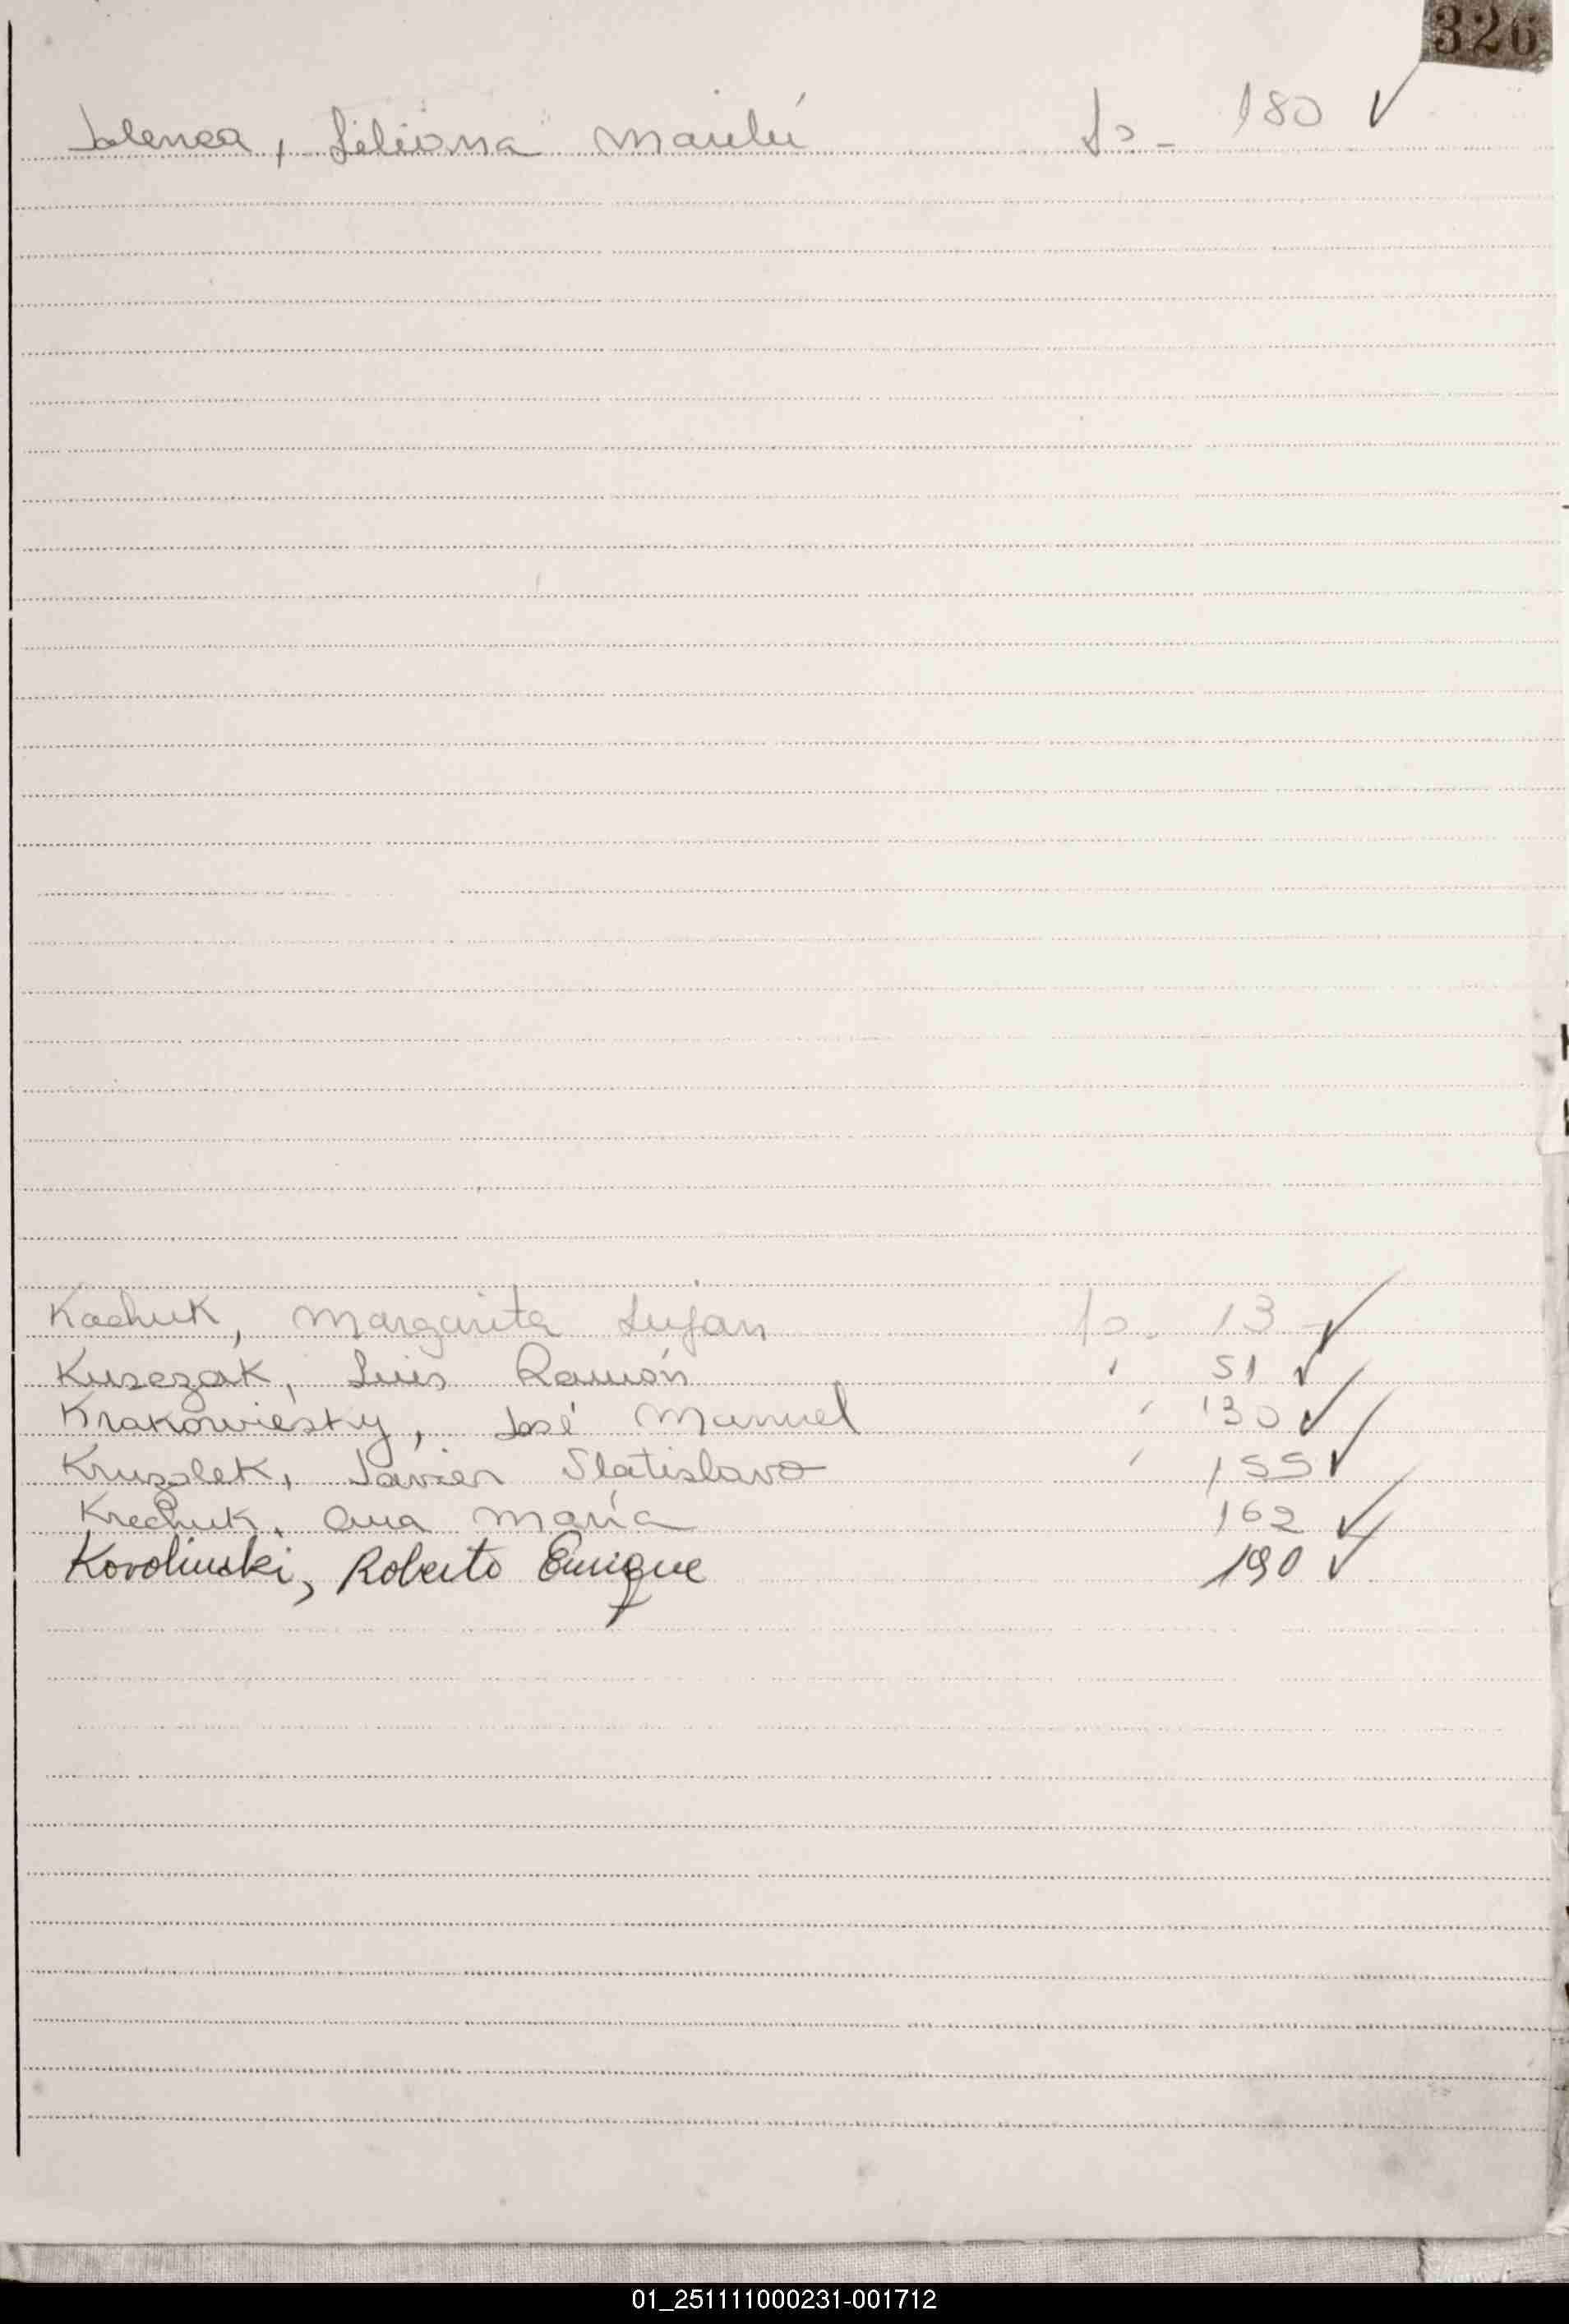 326
Jolenea, Liliana Marilú fo- 180 ✓
Kachuk, Margarita Lujan fo. 13 ✓
Kusczak, Luis Ramón " 51 ✓
Krakowiesky, José Manuel " 130 ✓
Kruzolek, Javier Slatislavo " 155 ✓
Krechuk, Ana María 162 ✓
Korolinski, Roberto Enrique 190 ✓
01_251111000231-001712